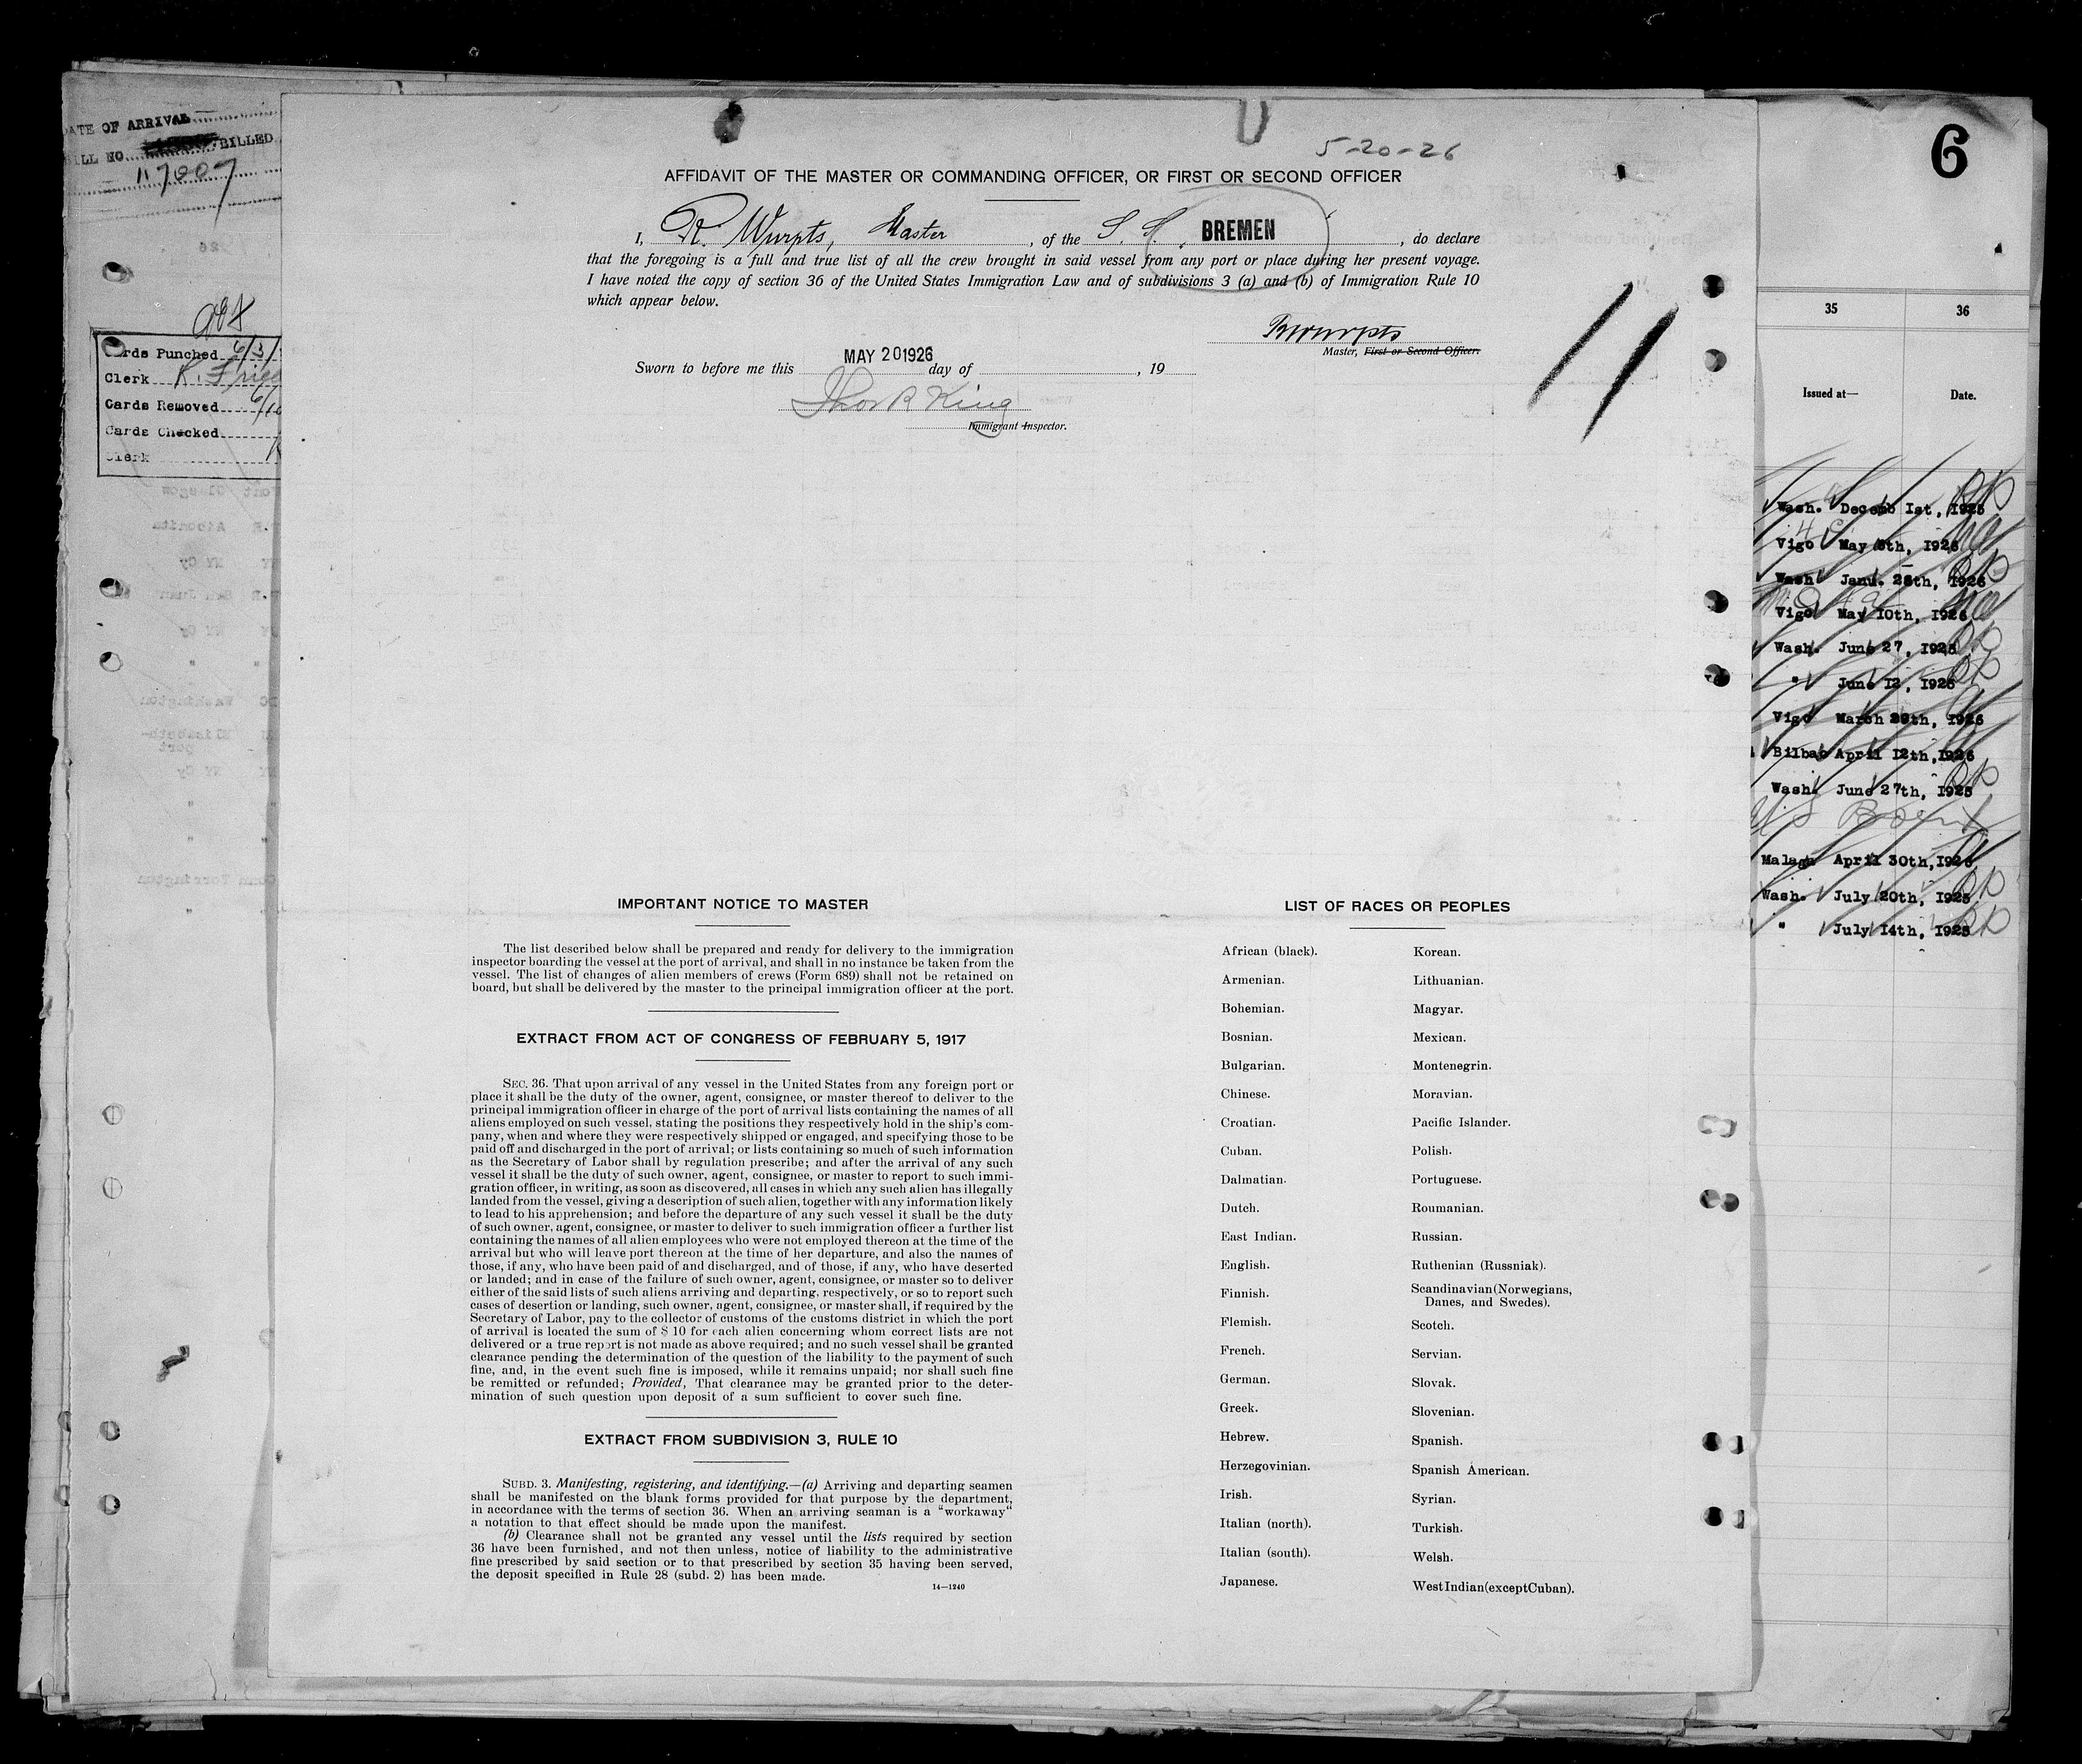 DATE OF ARRIVAL
BILL NO. BILLED
117007
Cards Punched 6/3/
Clerk
Cards Removed
Cards Checked
Clerk
5-20-26
AFFIDAVIT OF THE MASTER OR COMMANDING OFFICER, OR FIRST OR SECOND OFFICER
I, R. Wurpts, Master, of the S. S. BREMEN, do declare
that the foregoing is a full and true list of all the crew brought in said vessel from any port or place during her present voyage.
I have noted the copy of section 36 of the United States Immigration Law and of subdivisions 3 (a) and (b) of Immigration Rule 10
which appear below.
RWurpts
Master, First or Second Officer.
Sworn to before me this MAY 20 1926 day of , 19
Thos R King
Immigrant Inspector.
11
IMPORTANT NOTICE TO MASTER
The list described below shall be prepared and ready for delivery to the immigration
inspector boarding the vessel at the port of arrival, and shall in no instance be taken from the
vessel. The list of changes of alien members of crews (Form 689) shall not be retained on
board, but shall be delivered by the master to the principal immigration officer at the port.
EXTRACT FROM ACT OF CONGRESS OF FEBRUARY 5, 1917
SEC. 36. That upon arrival of any vessel in the United States from any foreign port or
place it shall be the duty of the owner, agent, consignee, or master thereof to deliver to the
principal immigration officer in charge of the port of arrival lists containing the names of all
aliens employed on such vessel, stating the positions they respectively hold in the ship's com-
pany, when and where they were respectively shipped or engaged, and specifying those to be
paid off and discharged in the port of arrival; or lists containing so much of such information
as the Secretary of Labor shall by regulation prescribe; and after the arrival of any such
vessel it shall be the duty of such owner, agent, consignee, or master to report to such immi-
gration officer, in writing, as soon as discovered, all cases in which any such alien has illegally
landed from the vessel, giving a description of such alien, together with any information likely
to lead to his apprehension; and before the departure of any such vessel it shall be the duty
of such owner, agent, consignee, or master to deliver to such immigration officer a further list
containing the names of all alien employees who were not employed thereon at the time of the
arrival but who will leave port thereon at the time of her departure, and also the names of
those, if any, who have been paid of and discharged, and of those, if any, who have deserted
or landed; and in case of the failure of such owner, agent, consignee, or master so to deliver
either of the said lists of such aliens arriving and departing, respectively, or so to report such
cases of desertion or landing, such owner, agent, consignee, or master shall, if required by the
Secretary of Labor, pay to the collector of customs of the customs district in which the port
of arrival is located the sum of $ 10 for each alien concerning whom correct lists are not
delivered or a true report is not made as above required; and no such vessel shall be granted
clearance pending the determination of the question of the liability to the payment of such
fine, and, in the event such fine is imposed, while it remains unpaid; nor shall such fine
be remitted or refunded; Provided, That clearance may be granted prior to the deter-
mination of such question upon deposit of a sum sufficient to cover such fine.
EXTRACT FROM SUBDIVISION 3, RULE 10
SUBD. 3. Manifesting, registering, and identifying.—(a) Arriving and departing seamen
shall be manifested on the blank forms provided for that purpose by the department,
in accordance with the terms of section 36. When an arriving seaman is a "workaway"
a notation to that effect should be made upon the manifest.
(b) Clearance shall not be granted any vessel until the lists required by section
36 have been furnished, and not then unless, notice of liability to the administrative
fine prescribed by said section or to that prescribed by section 35 having been served,
the deposit specified in Rule 28 (subd. 2) has been made.
14—1240
LIST OF RACES OR PEOPLES
African (black).
Armenian.
Bohemian.
Bosnian.
Bulgarian.
Chinese.
Croatian.
Cuban.
Dalmatian.
Dutch.
East Indian.
English.
Finnish.
Flemish.
French.
German.
Greek.
Hebrew.
Herzegovinian.
Irish.
Italian (north).
Italian (south).
Japanese.
Korean.
Lithuanian.
Magyar.
Mexican.
Montenegrin.
Moravian.
Pacific Islander.
Polish.
Portuguese.
Roumanian.
Russian.
Ruthenian (Russniak).
Scandinavian (Norwegians,
Danes, and Swedes).
Scotch.
Servian.
Slovak.
Slovenian.
Spanish.
Spanish American.
Syrian.
Turkish.
Welsh.
West Indian (except Cuban).
6
35 36
Issued at— Date.
Wash. Decemb 1st, 1925
Vigo May 5th, 1926
Wash Janu. 28th, 1926
Vigo May 10th, 1926
Wash. June 27, 1925
" June 12, 1925
Vigo March 29th, 1926
Bilbao April 12th, 1926
Wash. June 27th, 1925
Malaga April 30th, 1926
Wash. July 20th, 1925
" July 14th, 1925